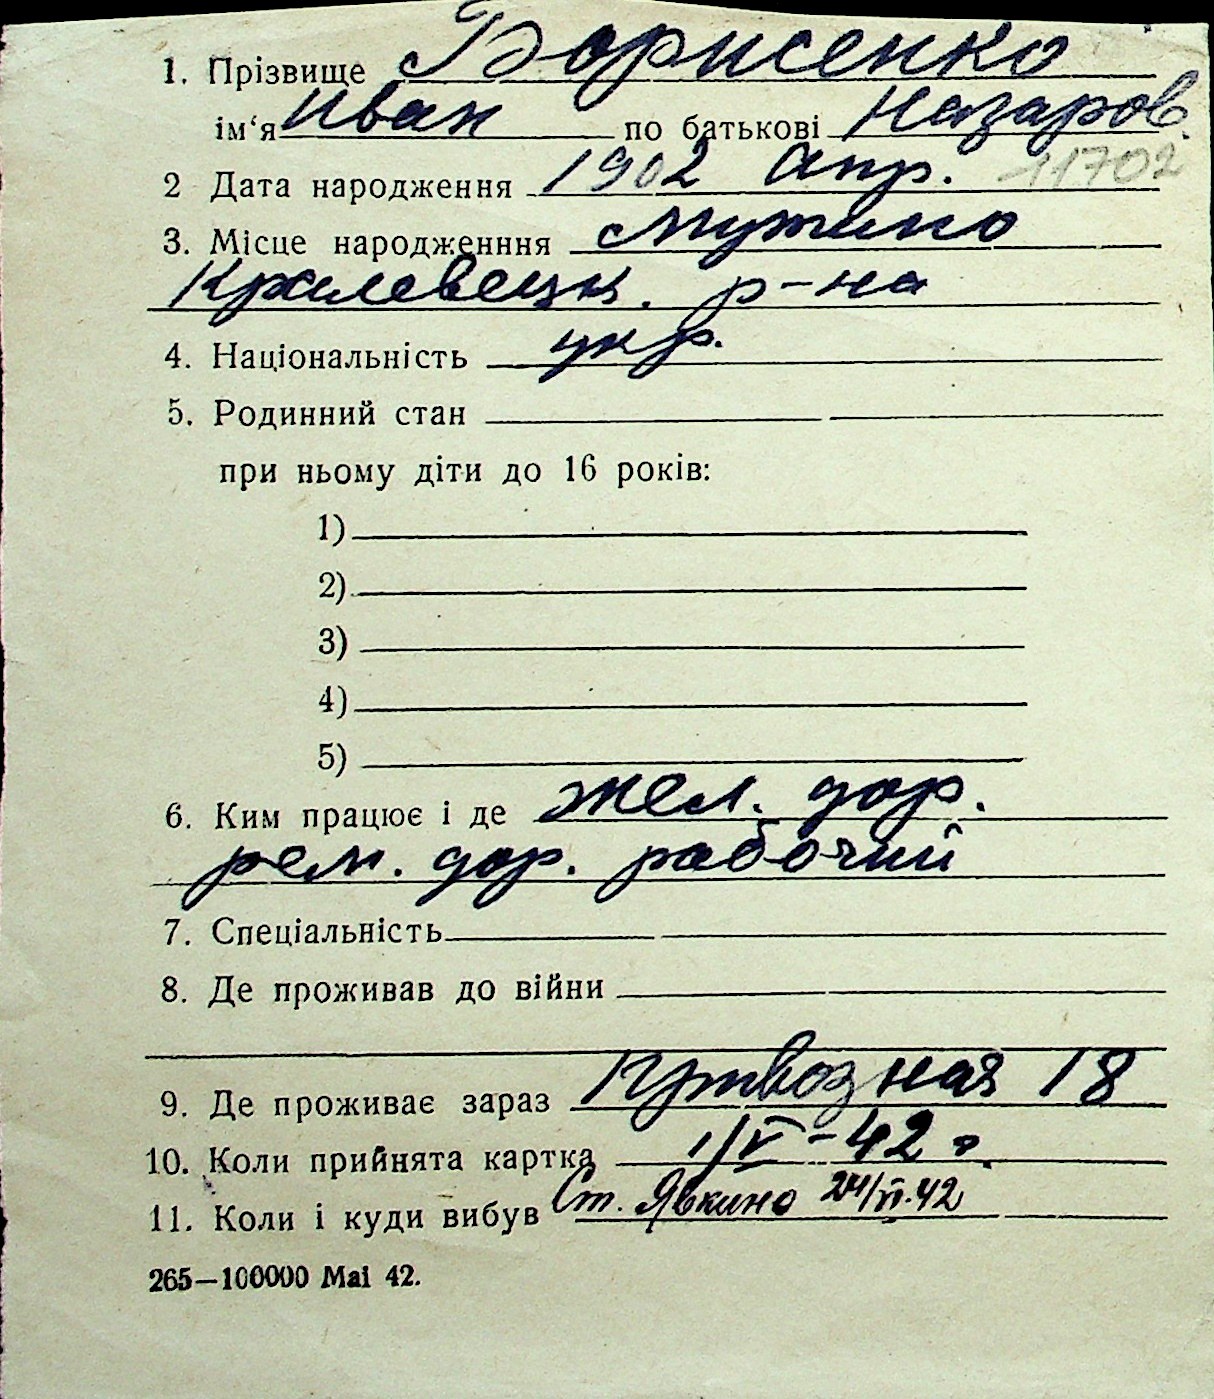 1. Прізвище Борисенко
ім‘я Иван по батькові Назаров.
2 Дата народження 1902 апр. 11702
3. Місце народженння Мутино
Кролевецк. р-на
4. Національність укр.
5. Родинний стан
при ньому діти до 16 років:
1)
2)
3)
4)
5)
6. Ким працює і де жел. дор.
рем. дор. рабочий
7. Спеціальність
8. Де проживав до війни
9. Де проживає зараз 18
10. Коли прийнята картка 1/V-42 г.
11. Коли і куди вибув Ст. Явкино 24/VI.42
265—100000 Mai 42.